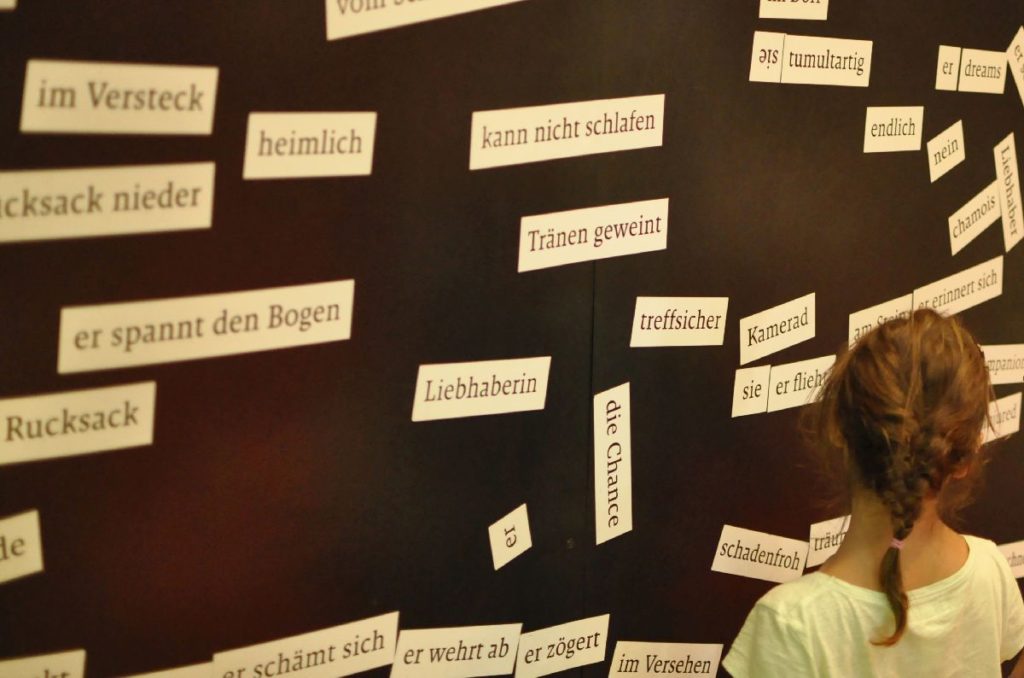 vom
im Dorf
sie tumultartig
er dreams
im Versteck
heimlich
kann nicht schlafen
endlich
nein
Liebhaber
chamois
cksack nieder
Tränen geweint
er spannt den Bogen
treffsicher
Kamerad
am
er erinnert sich
Liebhaberin
sie er flieh
mpanion
Rucksack
die Chance
er
de
schadenfroh
träu
er schämt sich
er wehrt ab
er zögert
im Versehen